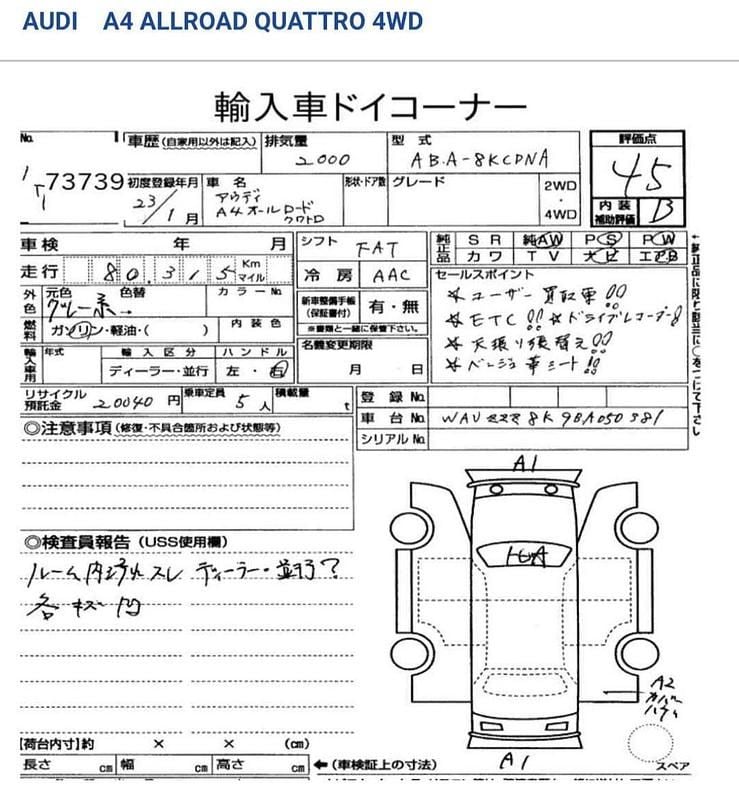 AUDI A4 ALLROAD QUATTRO 4WD
輸入車ドイコーナー
No.
1
73739
車歴 (自家用以外は記入)
排気量
2000
型式
ABA-8KCDNA
評価点
45
内装
補助評価
B
初度登録年月
23/1月
車名
アウディ
A4オールロード
クワトロ
形状・ドア数
グレード
2WD
・
4WD
車検 年 月
走行 80,315 Km マイル
シフト
FAT
冷房
AAC
純正品
SR 純AW PS PW
カワ TV ナビ エアB
外色
元色 色替
グレー系→
カラーNo
燃料
ガソリン・軽油・( )
内装色
新車整備手帳
(保証書付)
有・無
※書類と一緒に保管下さい。
セールスポイント
*ユーザー買取車!!
*ETC!! *ドライブレコーダー
*天張り張替え!!
*ベージュ革シート!!
輸入車用
年式
輸入区分
ディーラー・並行
ハンドル
左・右
名義変更期限
月 日
リサイクル
預託金
20040円
乗車定員
5人
積載量
t
登録No.
車台No.
WAUZZZ8K9BA050381
シリアルNo.
◎注意事項 (修復・不具合箇所および状態等)
◎検査員報告 (USS使用欄)
ルーム内汚れスレ ディーラー・並行?
各キズ凹
A1
A2
カバー
A1
スペア
【荷台内寸】約 × × (cm)
長さ cm 幅 cm 高さ cm
←(車検証上の寸法)